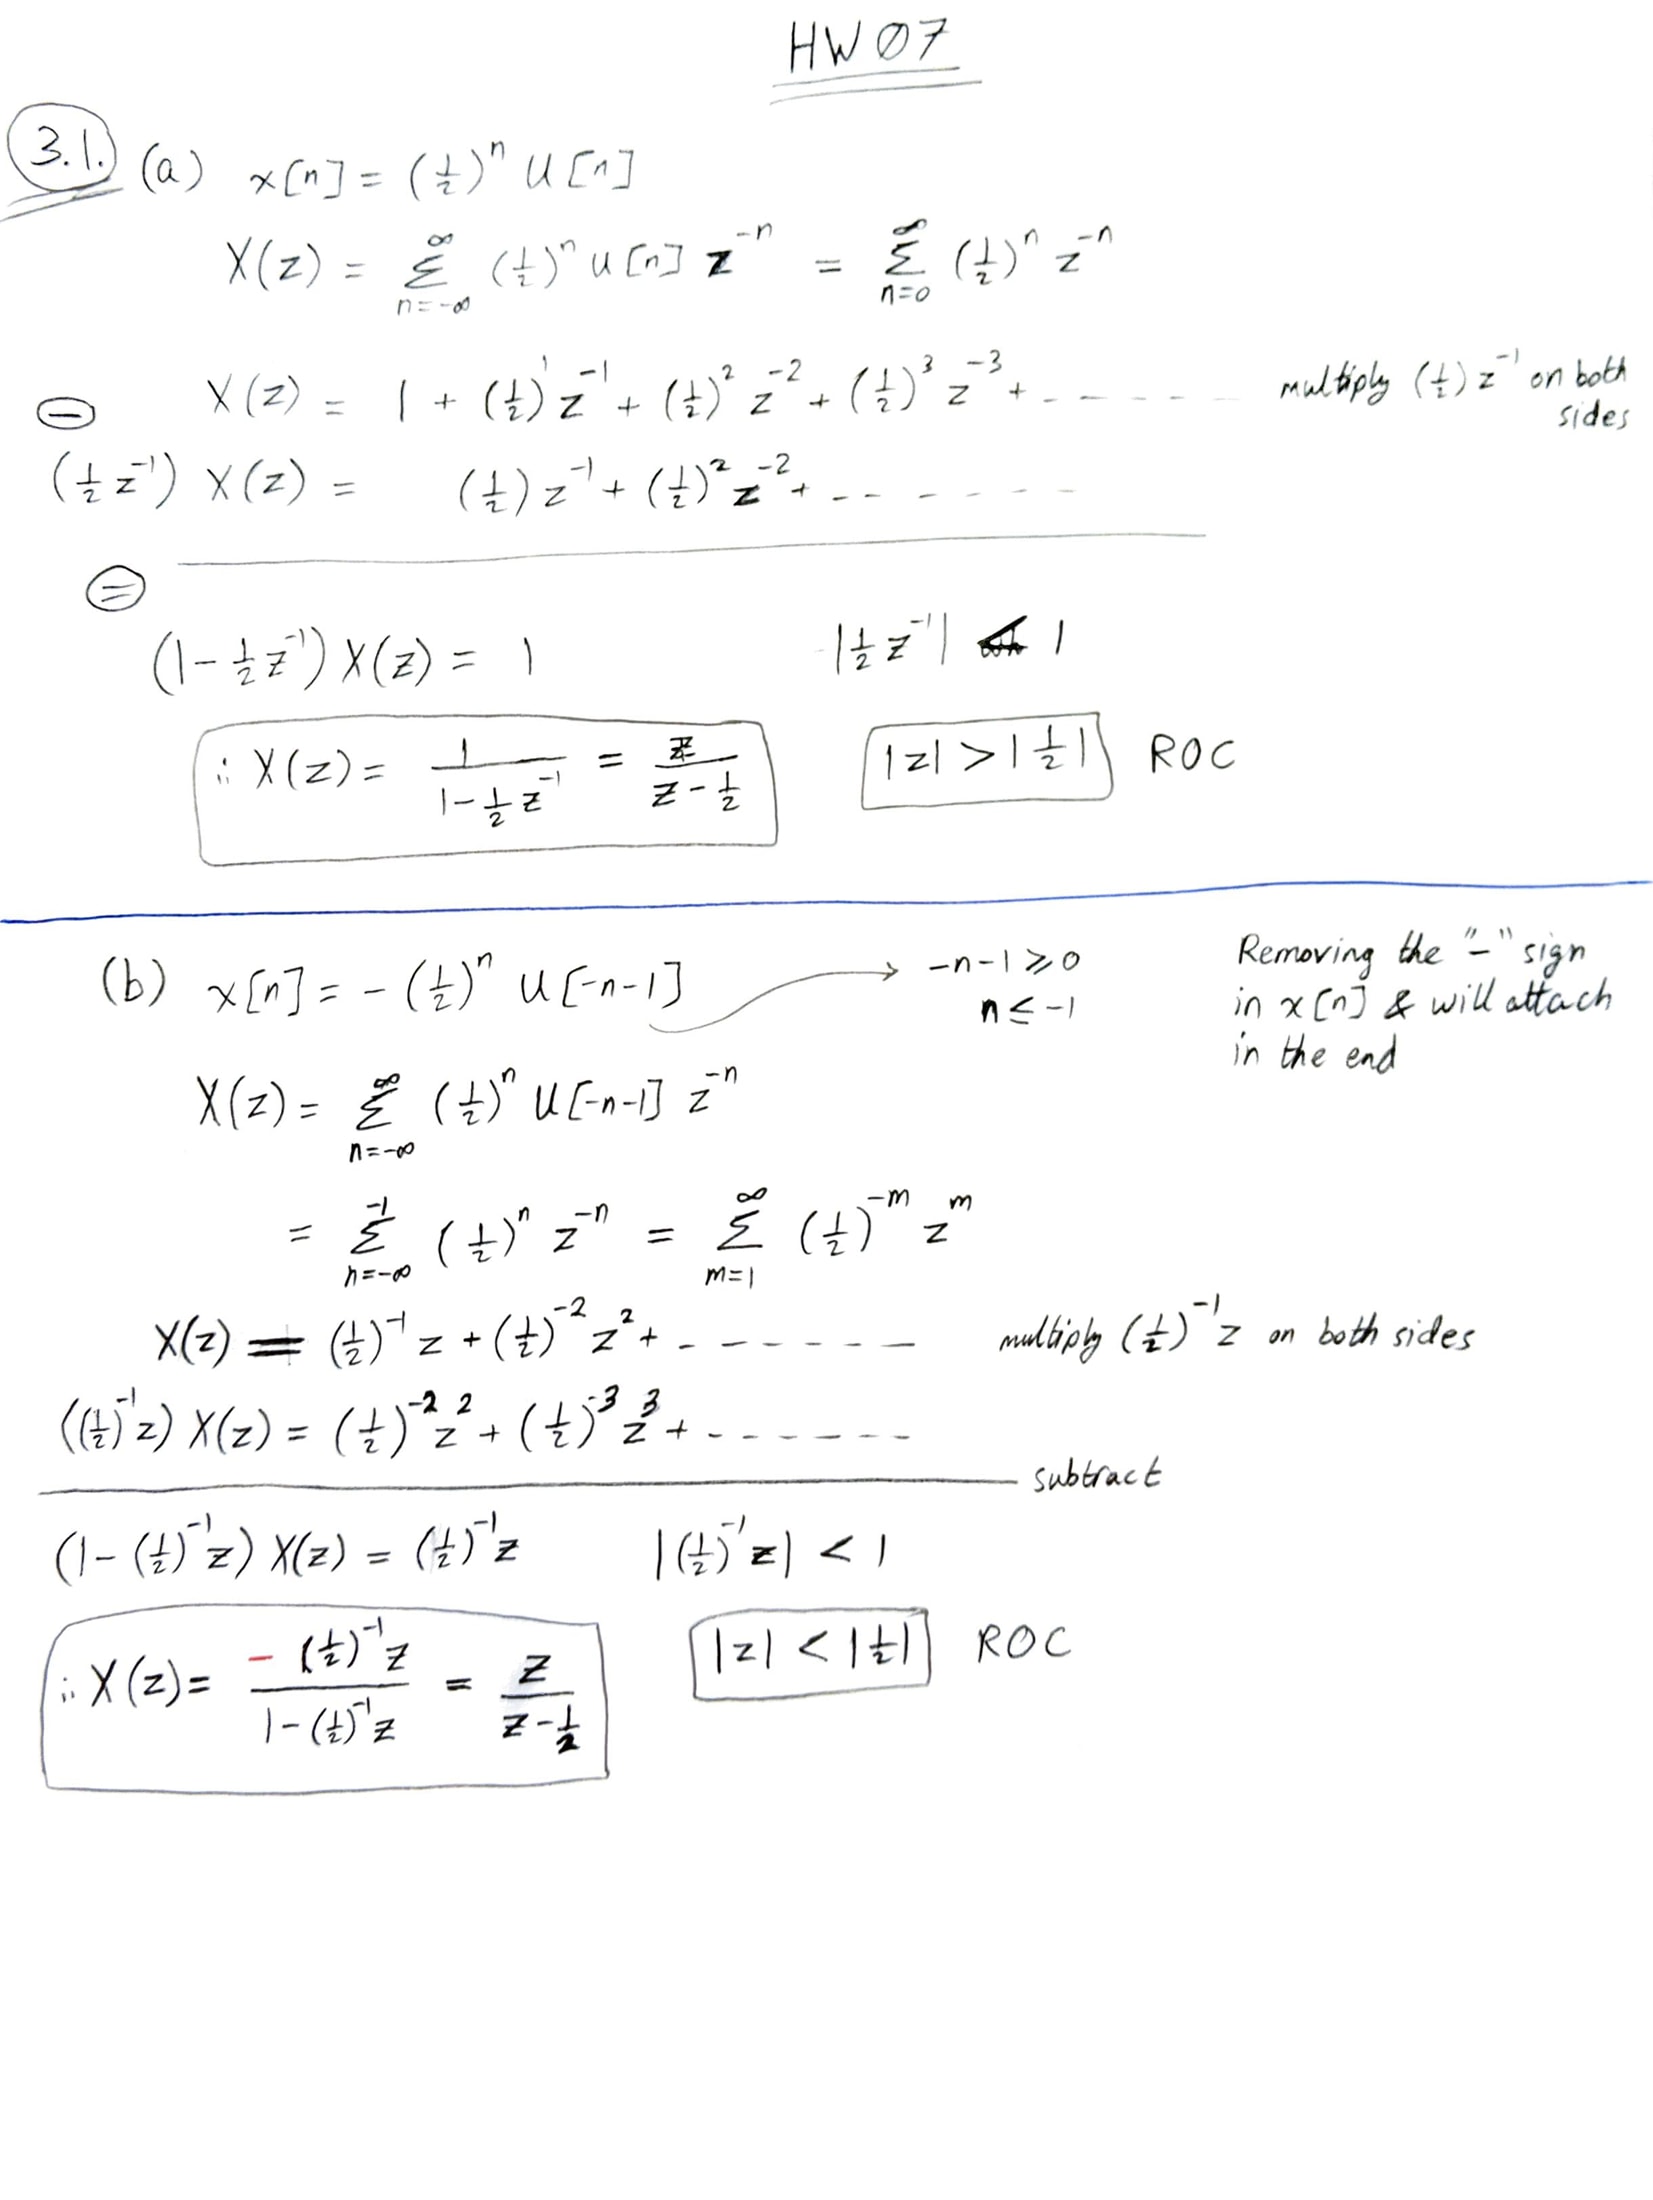 HW 07
3.1. (a) x[n] = (1/2)^n u[n]
X(z) = Σ_{n=-∞}^{∞} (1/2)^n u[n] z^{-n} = Σ_{n=0}^{∞} (1/2)^n z^{-n}
⊖ X(z) = 1 + (1/2)^1 z^{-1} + (1/2)^2 z^{-2} + (1/2)^3 z^{-3} + - - - - - - multiply (1/2) z^{-1} on both sides
(1/2 z^{-1}) X(z) = (1/2) z^{-1} + (1/2)^2 z^{-2} + - - - - - -
⊜
(1 - 1/2 z^{-1}) X(z) = 1 |1/2 z^{-1}| < 1
∴ X(z) = 1/(1 - 1/2 z^{-1}) = z/(z - 1/2) |z| > |1/2| ROC
(b) x[n] = - (1/2)^n u[-n-1] → -n-1 ≥ 0
n ≤ -1
Removing the "-" sign
in x[n] & will attach
in the end
X(z) = Σ_{n=-∞}^{∞} (1/2)^n u[-n-1] z^{-n}
= Σ_{n=-∞}^{-1} (1/2)^n z^{-n} = Σ_{m=1}^{∞} (1/2)^{-m} z^m
X(z) = (1/2)^{-1} z + (1/2)^{-2} z^2 + - - - - - - multiply (1/2)^{-1} z on both sides
((1/2)^{-1} z) X(z) = (1/2)^{-2} z^2 + (1/2)^{-3} z^3 + - - - - - -
subtract
(1 - (1/2)^{-1} z) X(z) = (1/2)^{-1} z |(1/2)^{-1} z| < 1
∴ X(z) = - (1/2)^{-1} z/(1 - (1/2)^{-1} z) = z/(z - 1/2) |z| < |1/2| ROC